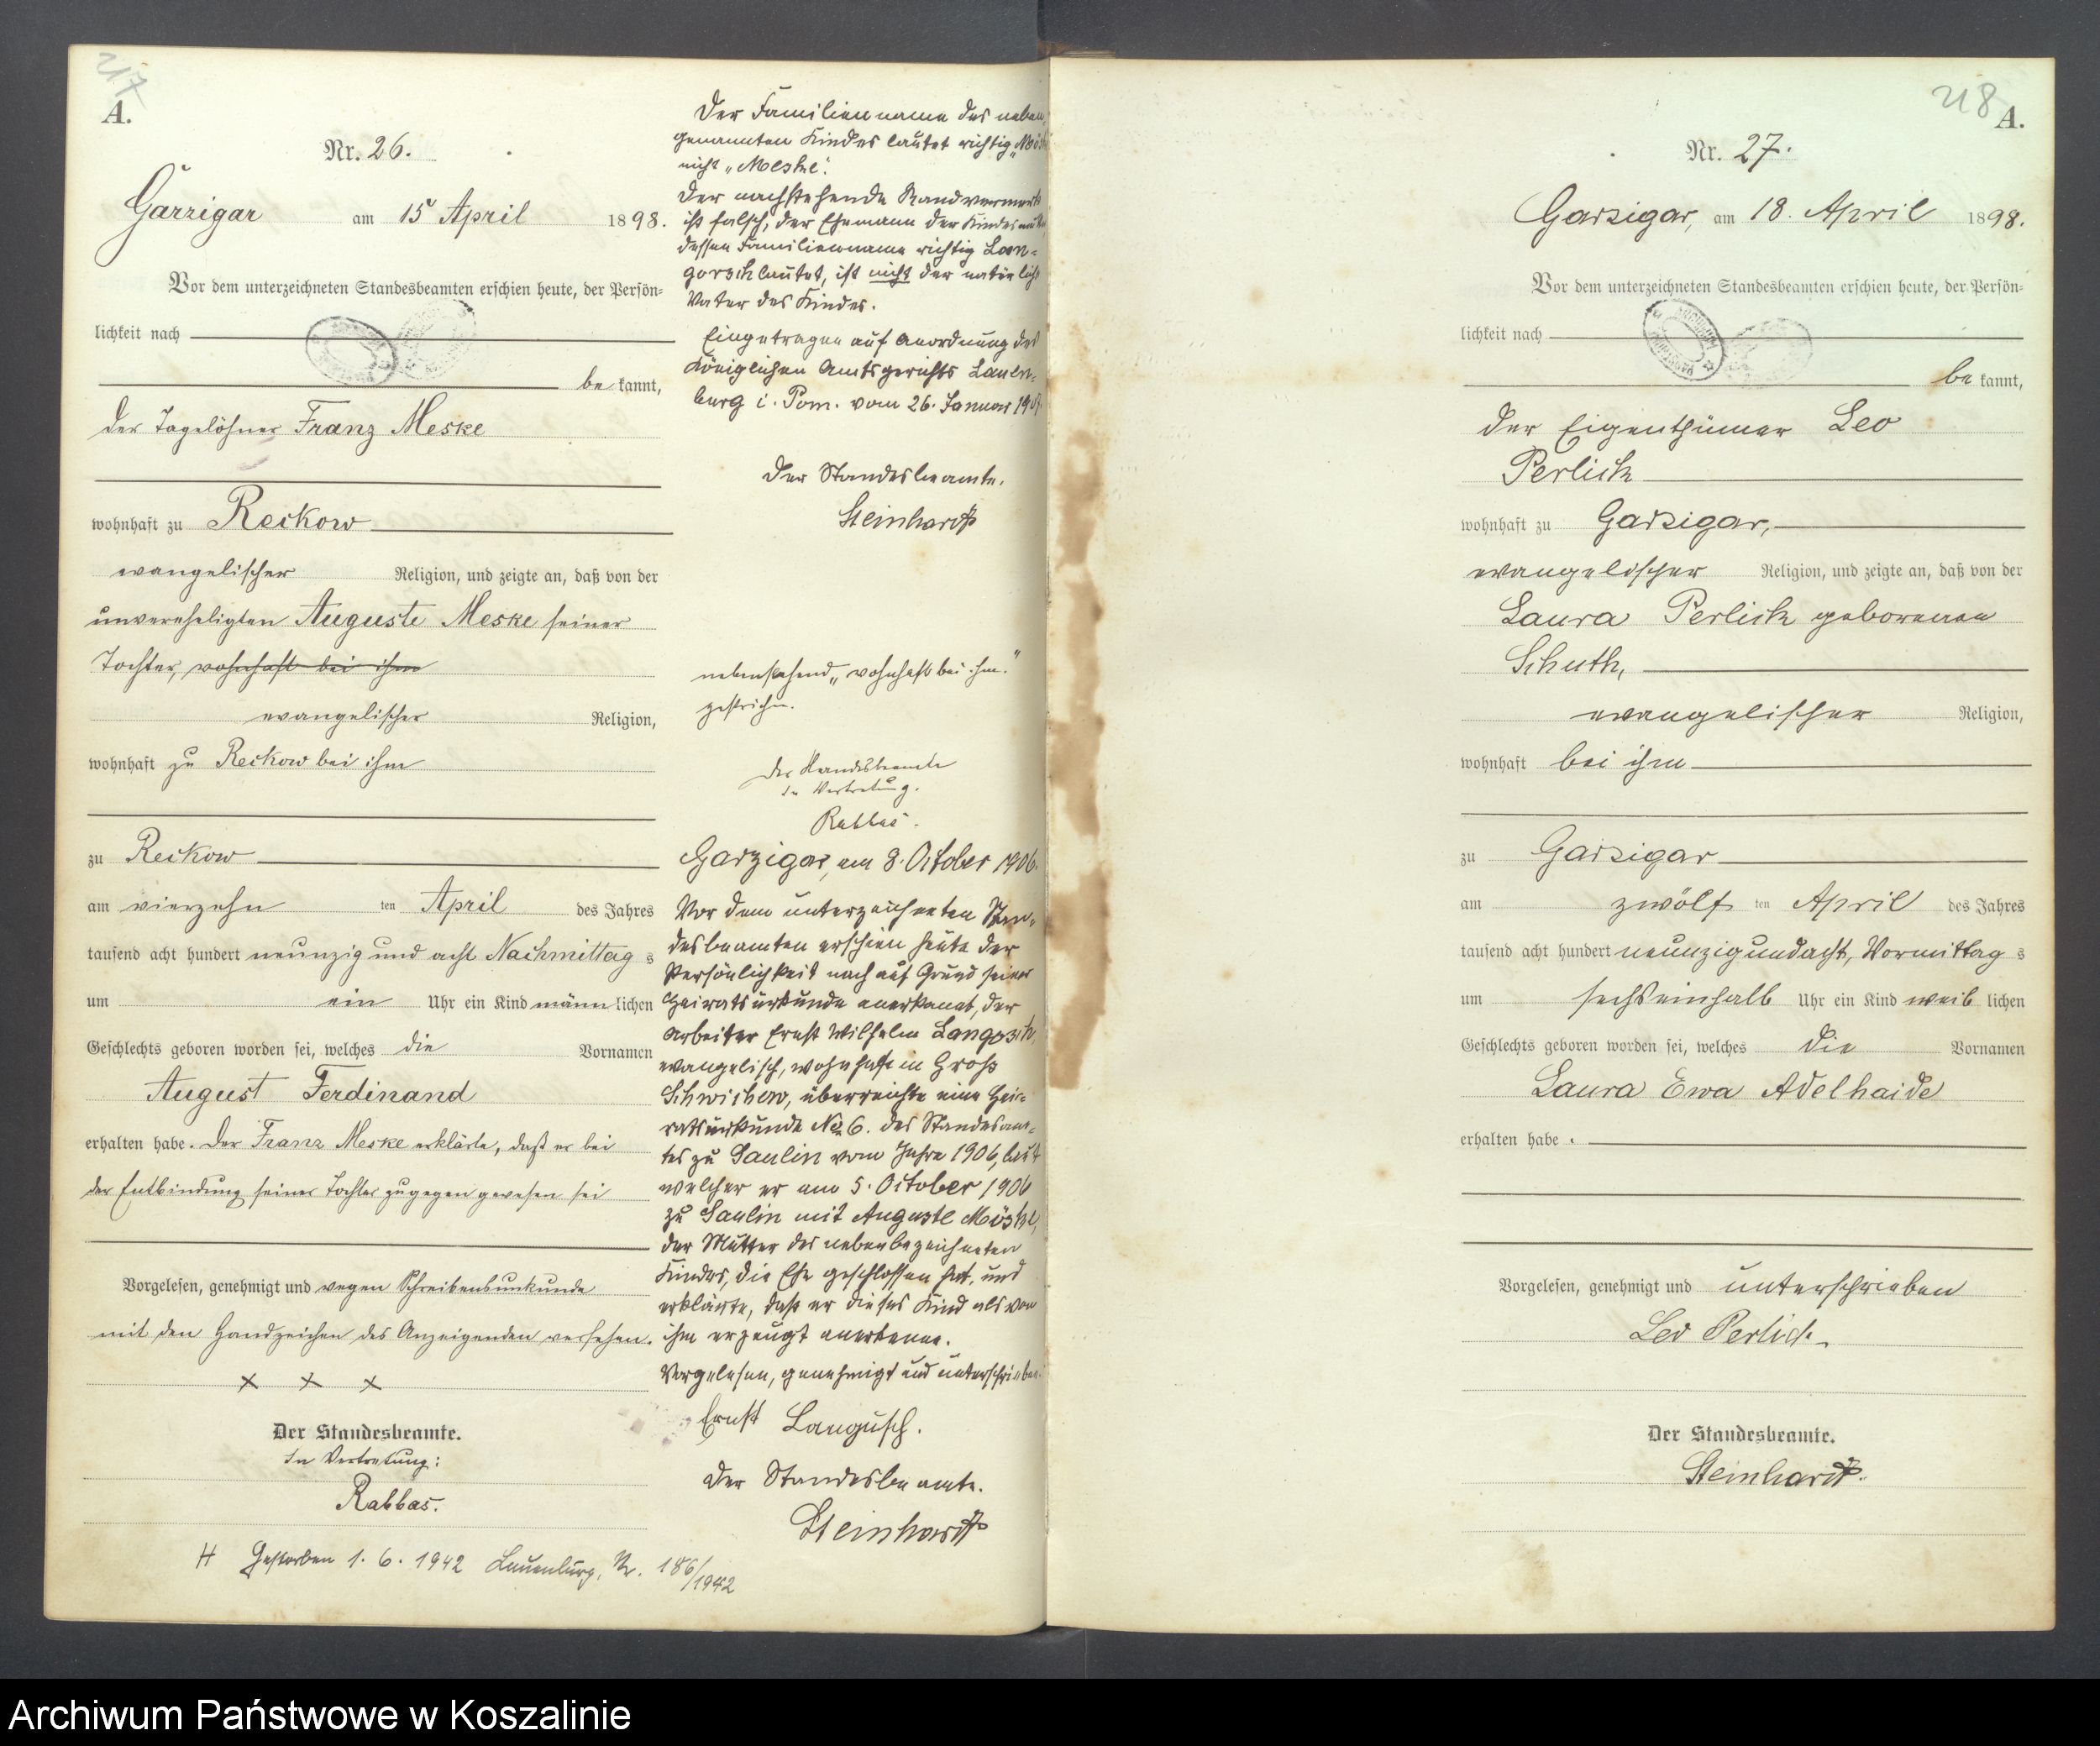 217
A.
Nr. 26.
Garzigar am 15 April 1898.
Vor dem unterzeichneten Standesbeamten erschien heute, der Persön=
lichkeit nach
be kannt,
der Tagelöhner Franz Meske
wohnhaft zu Reckow
evangelischer Religion, und zeigte an, daß von der
unvereheligten Auguste Meske seiner
Tochter, wohnhaft bei ihm
evangelischer Religion,
wohnhaft zu Reckow bei ihm
zu Reckow
am vierzehn ten April des Jahres
tausend acht hundert neunzig und acht Nachmittag s
um ein Uhr ein Kind männ lichen
Geschlechts geboren worden sei, welches die Vornamen
August Ferdinand
erhalten habe. Der Franz Meske erklärte, daß er bei
der Entbindung seiner Tochter zugegen gewesen sei
Vorgelesen, genehmigt und wegen Schreibensunkunde
mit den Handzeichen des Anzeigenden versehen.
x x x
Der Standesbeamte.
In Vertretung:
Rabbas.
H Gestorben 1. 6. 1942 Lauenburg, Nr. 186/1942
Der Familienname des neben
genannten Kindes lautet richtig
nicht „Meske".
Der nachstehende Randvermerk
ist falsch, der Ehemann der
dessen Familienname richtig Lan=
gosch lautet, ist nicht der natürliche
Vater des Kindes.
Eingetragen auf Anordnung des
Königlichen Amtsgerichts Lauen=
burg i. Pom. vom 26. Januar
Der Standesbeamte.
Steinhardt
nebenstehend „wohnhaft bei ihm."
gestrichen.
Der Standesbeamte
In Vertretung.
Rabbas.
Garzigar, am 8. October 1906.
Vor dem unterzeichneten Stan=
desbeamten erschien heute der
Persönlichkeit nach auf Grund seiner
Heiratsurkunde anerkannt, der
Arbeiter Ernst Wilhelm Langosch,
evangelisch, wohnhaft in Groß
Schwichow, überreichte eine Hei=
ratsurkunde No 6. des Standesam=
tes zu Saulin vom Jahre 1906, laut
welcher er am 5. October 1906
zu Saulin mit Auguste Möske,
der Mutter des nebenbezeichneten
Kindes, die Ehe geschlossen hat, und
erklärte, daß er dieses Kind als von
ihm erzeugt anerkenne.
Vorgelesen, genehmigt und unterschrieben
Ernst Langusch.
Der Standesbeamte.
Steinhardt
218
A.
Nr. 27.
Garzigar, am 18. April 1898.
Vor dem unterzeichneten Standesbeamten erschien heute, der Persön=
lichkeit nach
be kannt,
der Eigenthümer Leo
Perlick
wohnhaft zu Garzigar,
evangelischer Religion, und zeigte an, daß von der
Laura Perlick geborenen
Schuth,
evangelischer Religion,
wohnhaft bei ihm
zu Garzigar
am zwölf ten April des Jahres
tausend acht hundert neunzigundacht, Vormittag s
um sechseinhalb Uhr ein Kind weib lichen
Geschlechts geboren worden sei, welches die Vornamen
Laura Ewa Adelhaide
erhalten habe.
Vorgelesen, genehmigt und unterschrieben
Leo Perlick
Der Standesbeamte.
Steinhardt.
Archiwum Państwowe w Koszalinie